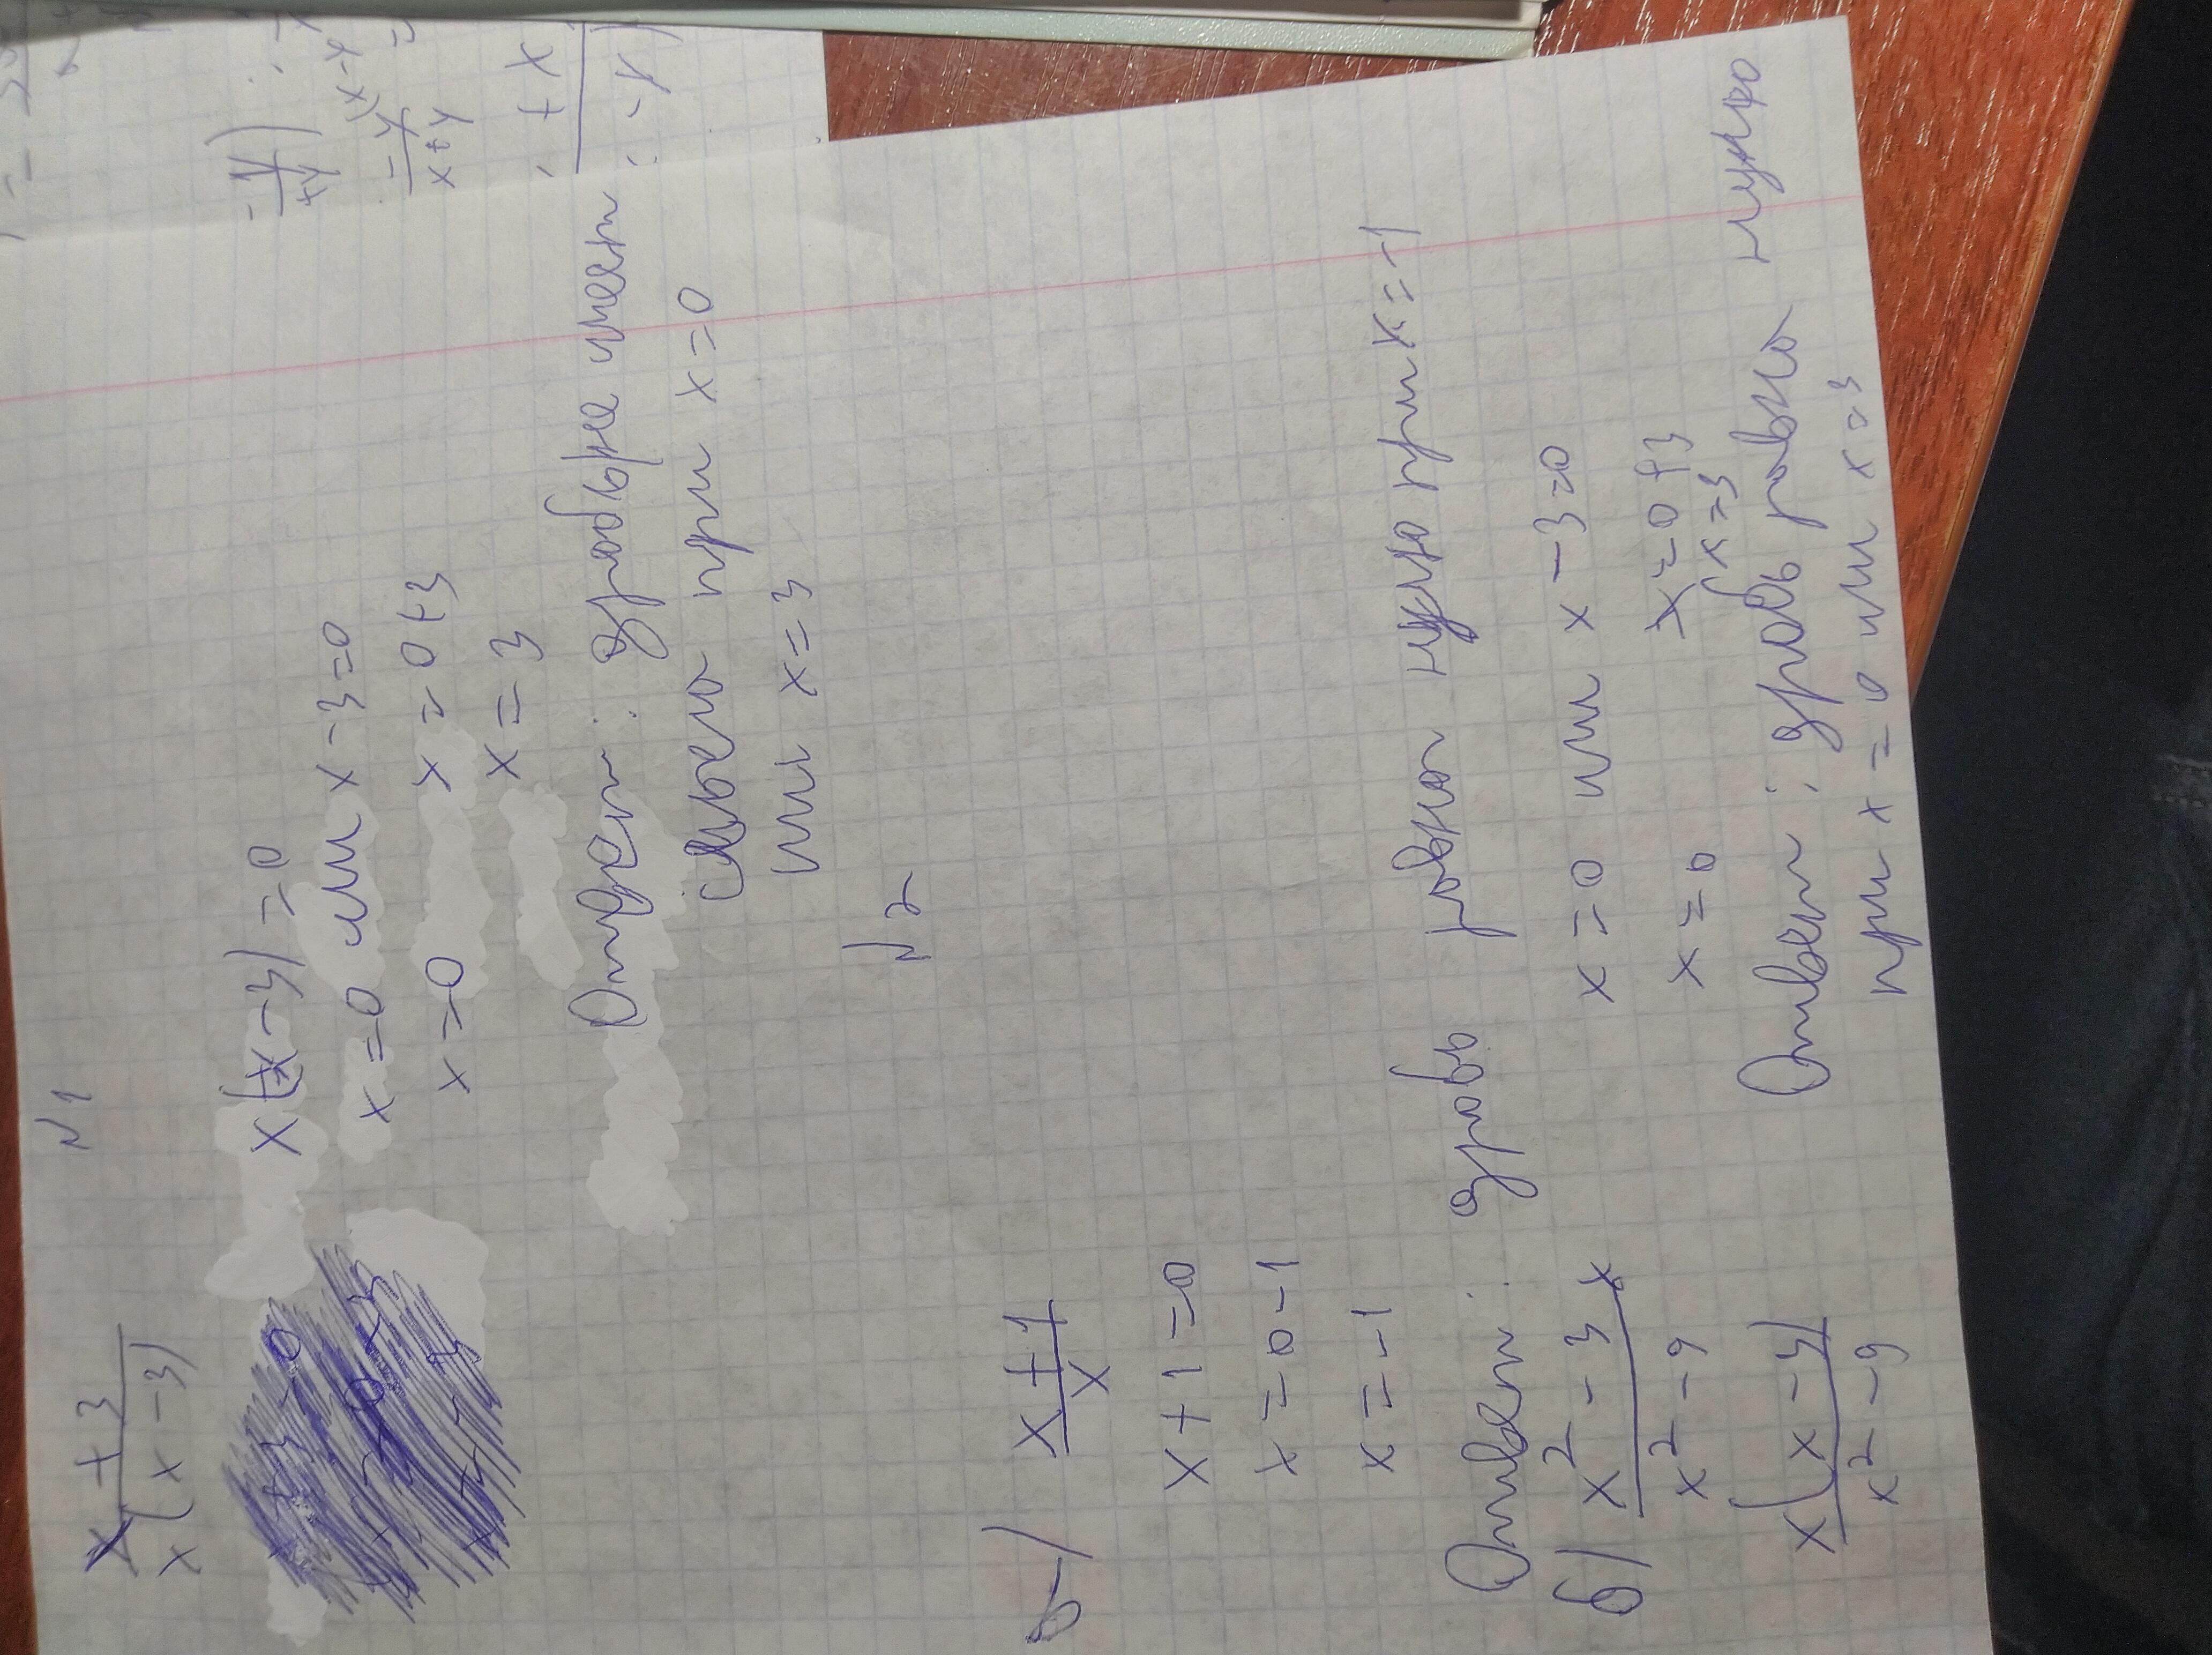 N1
x+3
x(x-3)
x(x-3)=0
x=0 или x-3=0
x=0 x=0+3
x=3
Ответ: дробь не имеет
смысла при x=0
или x=3
N2
а) x+1
x
x+1=0
x=0-1
x=-1
Ответ: дробь равна нулю при x=-1
б) x²-3x
x²-9
x=0 или x-3=0
x=0 x=0+3
x=3
x(x-3)
x²-9
Ответ: дробь равна нулю
при x=0 или x=3